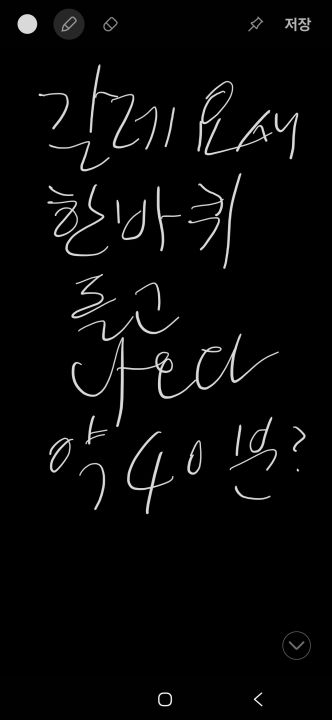 저장
갈레 요새
한바퀴
돌고
나오다
약 40분?